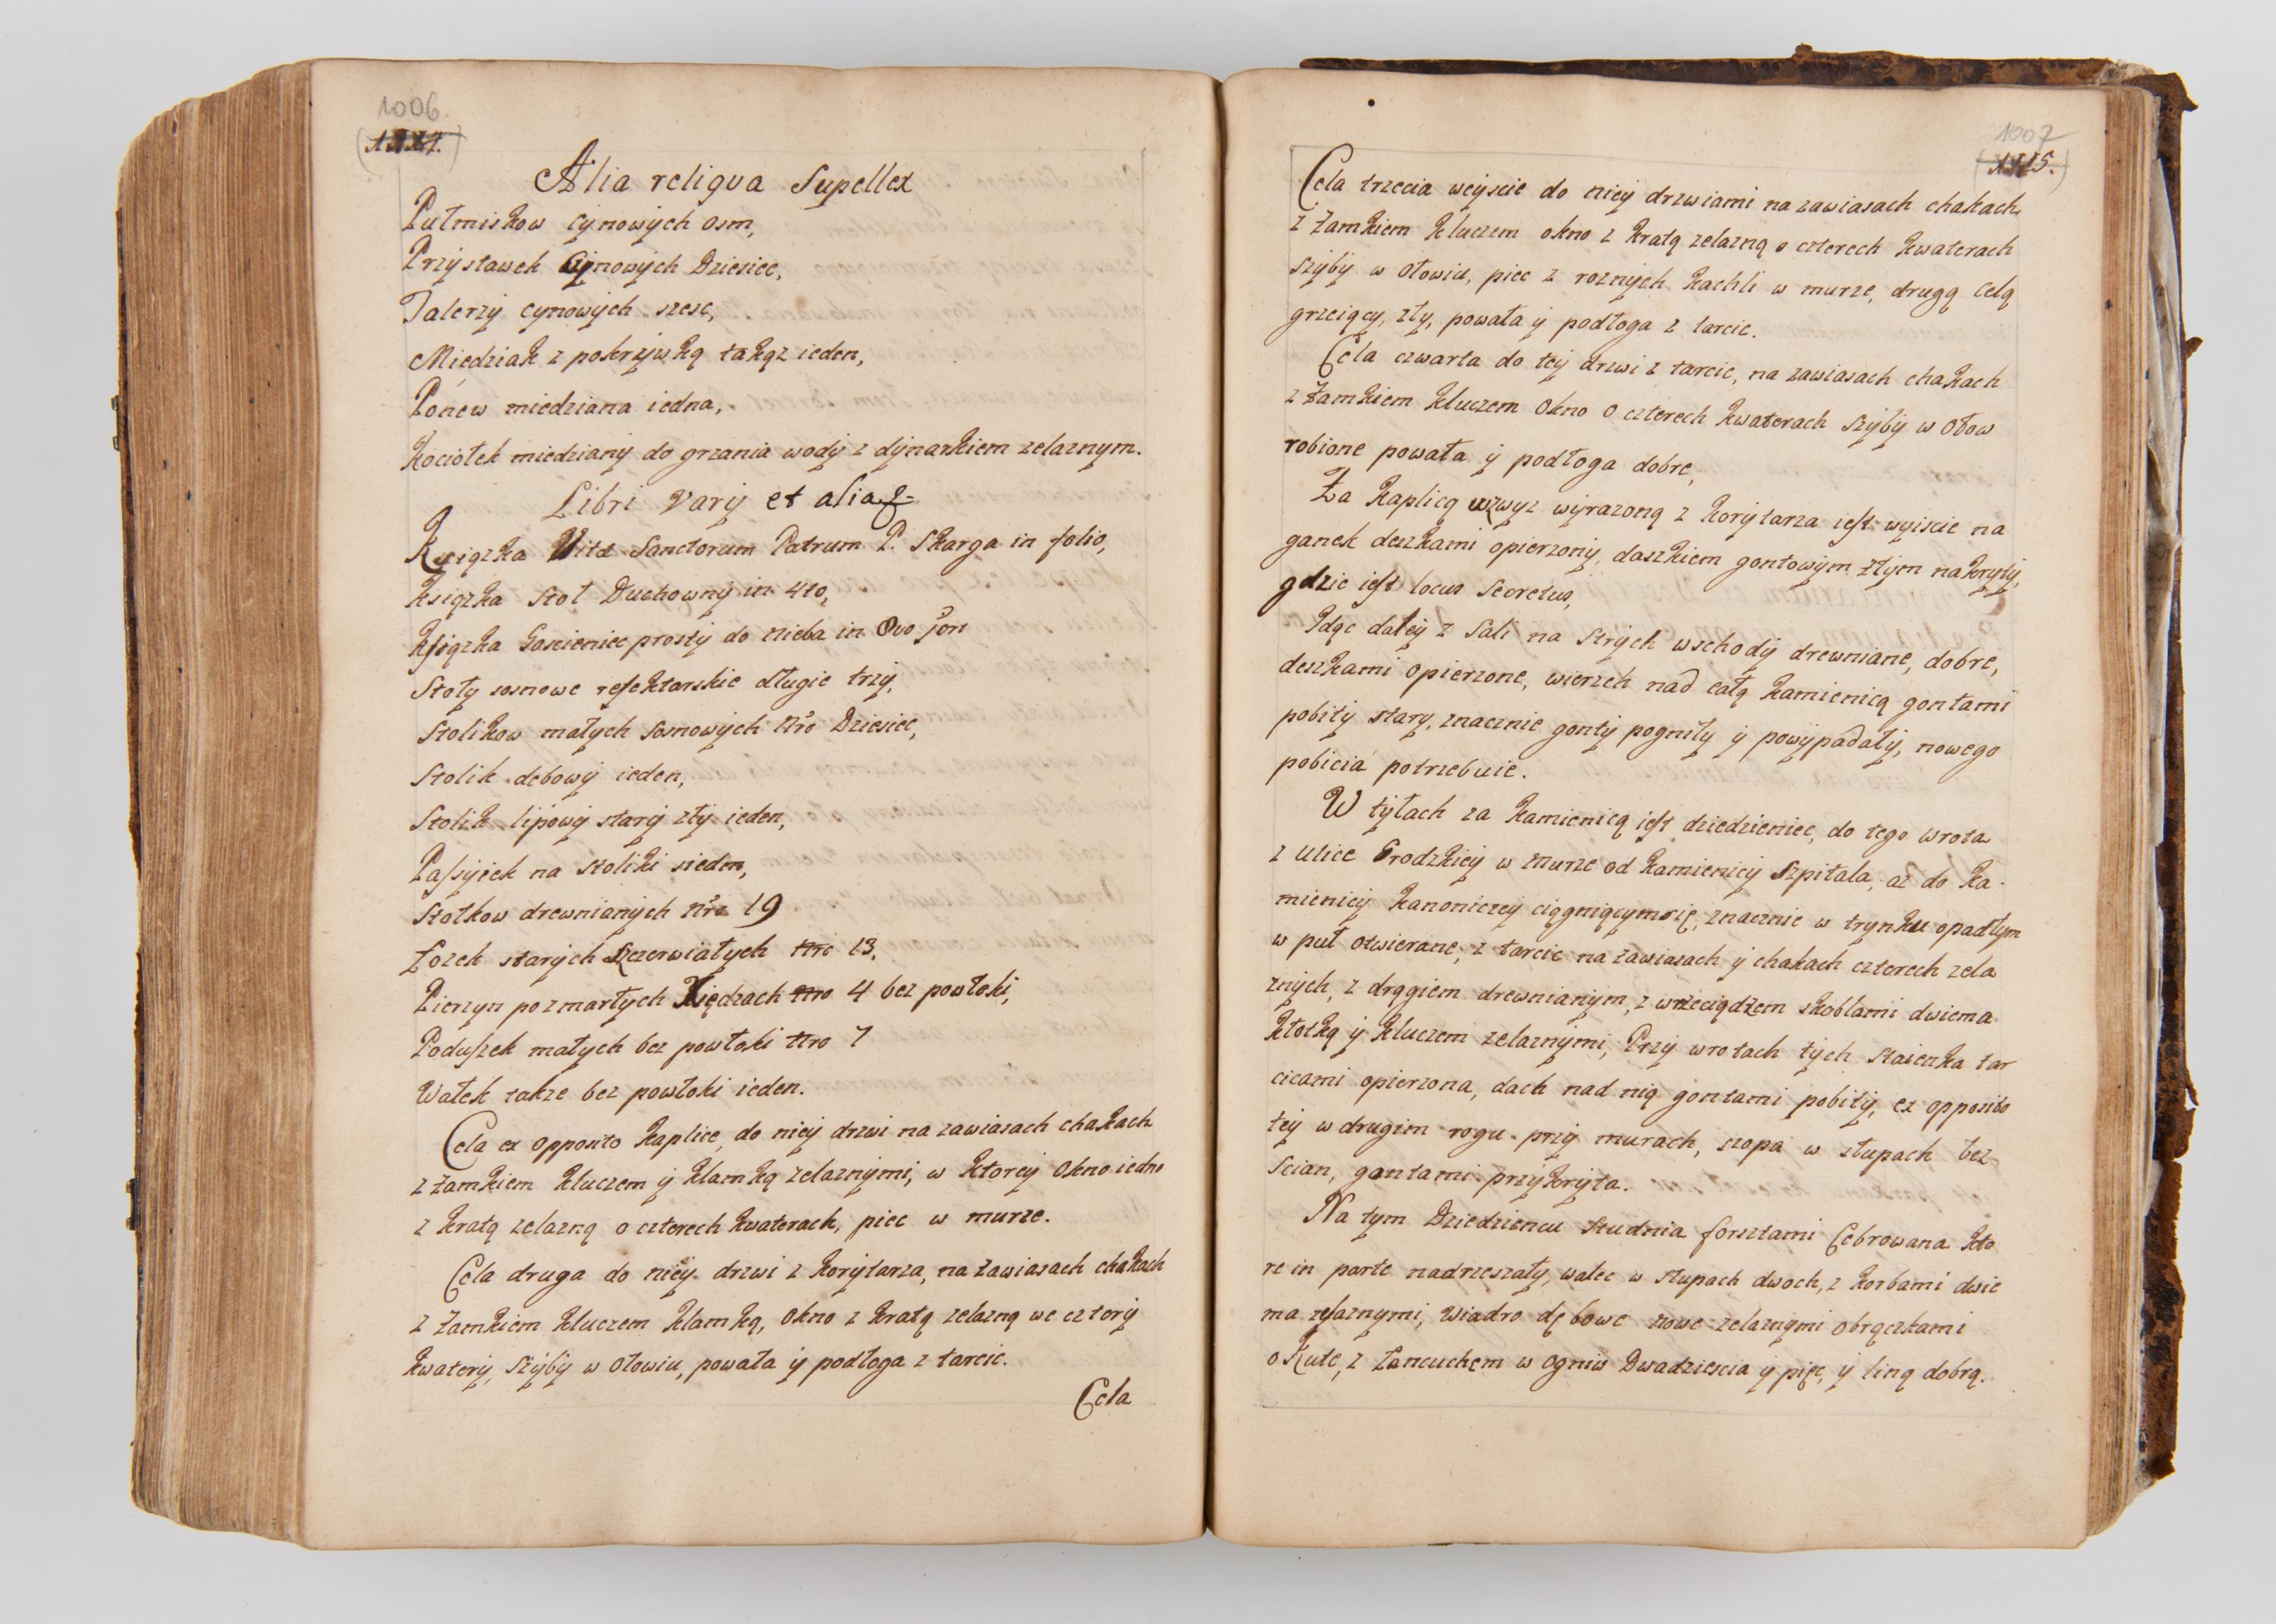 1006.
Alia reliqua Supellex
Pułmiskow Cynowych osm,
Przystawek Cynowych Dziesiec,
Talerzy cynowych szesc,
Miedziak z pokrzywką takąz ieden,
Pónew miedziana iedna,
Kociołek miedziany do grzania wody z dynarkiem zelaznym.
Libri varij et alia
Xsiązka Vitæ Sanctorum Patrum P. Skarga in folio,
Ksiązka Stoł Duchowny in 4to,
Książka Gosciniec prosty do Nieba in 8vo
Stoły sosnowe refektarskie długie trzy,
Stolikow małych sosnowych Nro Dziesiec,
Stolik dębowy ieden,
Stolik lipowy stary zły ieden,
Passyiek na stoliki siedm,
Stołkow drewnianych Nro 19
Łozek starych Sczerwiałych Nro 13,
Pierzyn pozmarłych Xiędzach Nro 4 bez powłoki,
Poduszek małych bez powłoki Nro 7
Wałek takze bez powłoki ieden.
Cela ex opposito Kaplice, do niey drzwi na zawiasach chakach
z zamkiem kluczem y klamką zelaznymi, w ktorey okno iedno
z kratą zelazną o czterech kwaterach, piec w murze.
Cela druga do niey drzwi z korytarza, na zawiasach chakach
z zamkiem kluczem klamką, okno z kratą zelazną we cztery
kwatery, szyby w ołowiu, powała y podłoga z tarcic.
Cela
1007
1115.
Cela trzecia weyscie do niey drzwiami na zawiasach chakach
z zamkiem kluczem okno z kratą zelazną o czterech kwaterach
szyby w ołowiu, piec z roznych kachli w murze, drugą Celą
grzeiący, zły, powała y podłoga z tarcic.
Cela czwarta do tey drzwi z tarcic, na zawiasach chakach
z zamkiem kluczem okno o czterech kwaterach szyby w ołow
robione powała y podłoga dobre,
Za Kaplicą wzwyz wyrazoną z korytarza iest wyiscie na
ganek deszkami opierzony, daszkiem gontowym złym nakryty,
gdzie iest locus Secretus,
Idąc daley z Sali na strych wschody drewniane, dobre,
deszkami opierzone, wierzch nad całą kamienicą gontami
pobity stary, znacznie gonty pogniły y powypadały, nowego
pobicia potrzebuie.
W tyłach za kamienicą iest dziedzieniec, do tego wrota
z ulice Grodzkiey w murze od kamienicy Szpitala, az do Ka-
mienicy Kanoniczey ciągniącymsię, znacznie w trynku opadłym
w puł otwierane, z tarcic na zawiasach y chakach czterech zela
znych, z drągiem drewnianym, z wrzeciądzem skoblami dwiema
kłotką y kluczem zelaznymi, Przy wrotach tych staienka tar
cicami opierzona, dach nad nią gontami pobity, ex opposito
tey w drugim rogu przy murach, szopa w słupach bez
scian, gontami przykryta.
Na tym Dziedziencu studnia forsztami Cebrowana kto
re in parte nadrzeszały, walec w słupach dwoch, z korbami dwie
ma zelaznymi, wiadro dębowe nowe zelaznymi obrączkami
okute, z łancuchem w ogniw Dwadziescia y pięc, y liną dobrą.